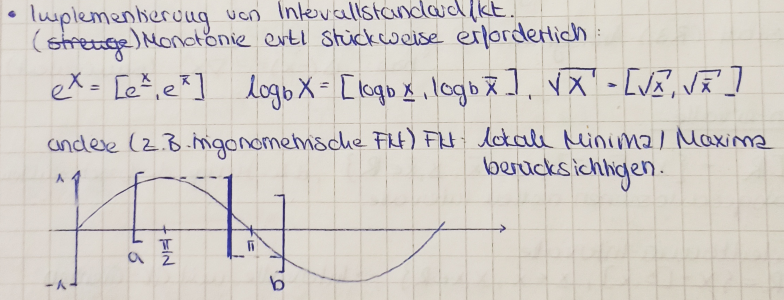 • Implementierung von Intervallstandardfkt.
(strenge) Monotonie evtl stückweise erforderlich:
e^x = [e^x̲, e^x̅] log_b X = [log_b x̲, log_b x̅], √X = [√x̲, √x̅]
andere (z.B. trigonometrische Fkt) Fkt. lokale Minima/Maxima
berücksichtigen.
1
a π/2 π
-1 b